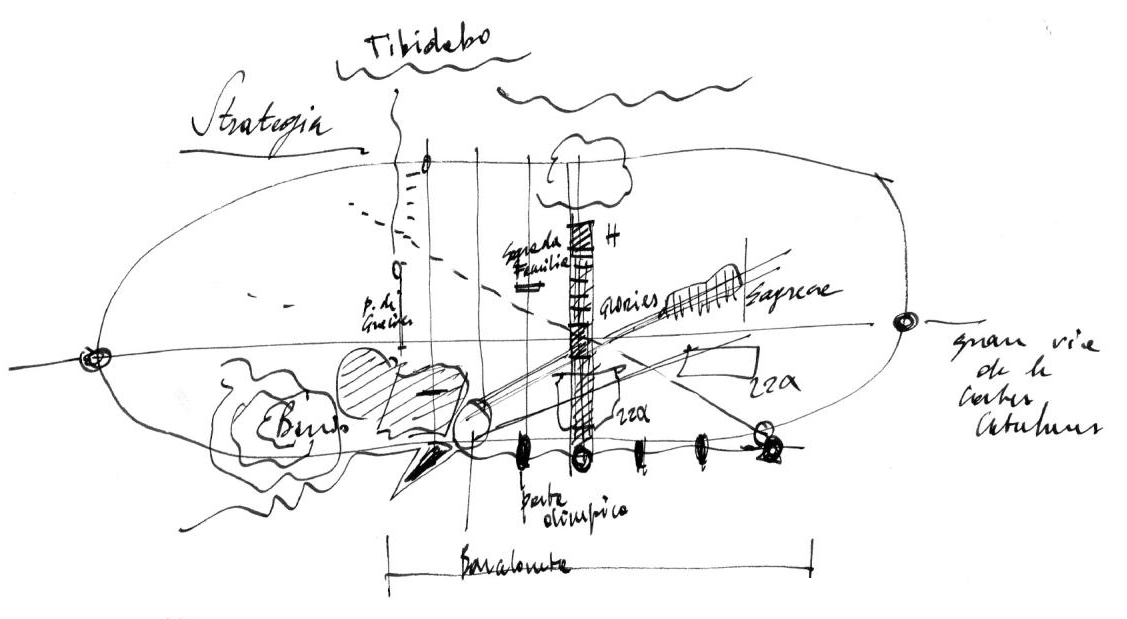 Tibidabo
Strategia
Sagrada
Familia
H
p. de
Gracies
glories
Sagrera
22a
22a
gran via
de le
Cortes
Catalanes
porto
olimpico
Barceloneta